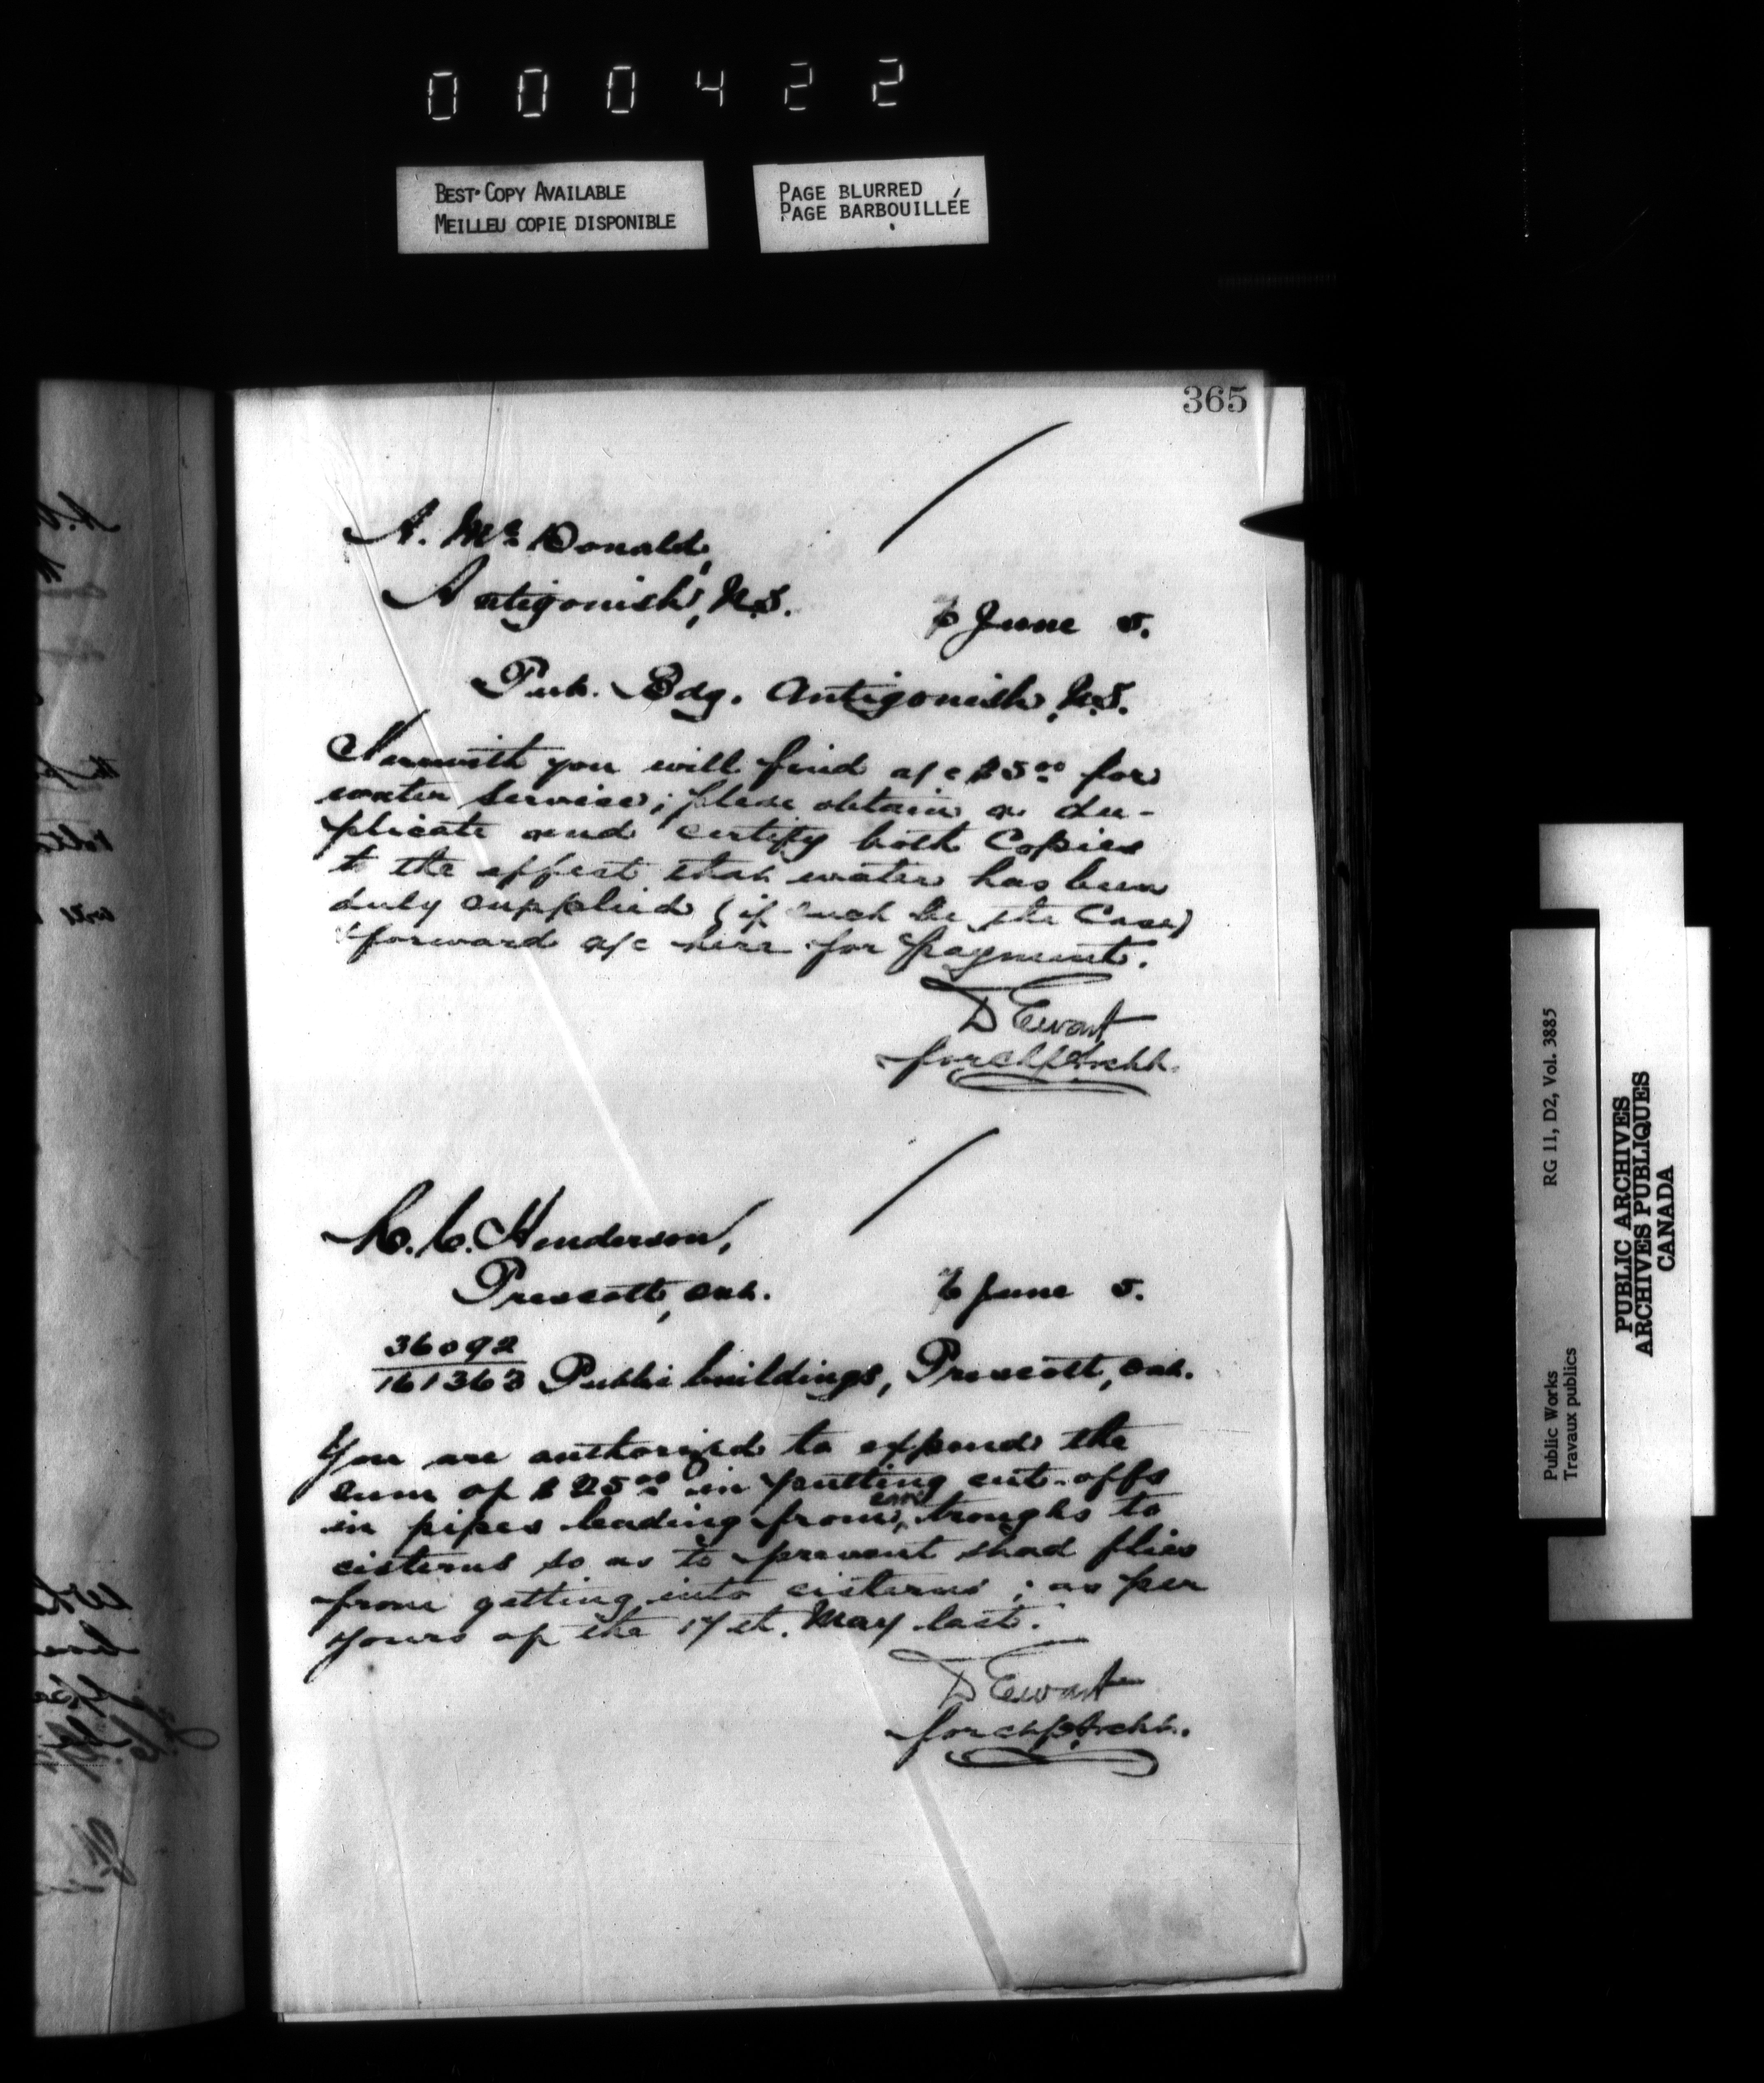 000422
BEST COPY AVAILABLE
MEILLEU COPIE DISPONIBLE
PAGE BLURRED
PAGE BARBOUILLÉE
365
A. McDonald,
Antigonish, N.S.
6 June 5.
Pub. Bdg. Antigonish, N.S.
Herewith you will find a/c $5.00 for
water service; please obtain a du-
plicate and certify both Copies
to the effect that water has been
duly supplied (if such be the Case)
forward a/c here for payment.
D Ewart
for chf Archt.
C. C. Henderson,
Prescott, Ont.
6 June 5.
36092
161363 Public buildings, Prescott, Ont.
You are authorized to expend the
sum of $25.00 in putting cut-offs
in pipes leading from eave troughs to
cisterns so as to prevent shad flies
from getting into cisterns; as per
yours of the 17th. May last.
D Ewart
for chf Archt.
Public Works
Travaux publics
RG 11, D2, Vol. 3885
PUBLIC ARCHIVES
ARCHIVES PUBLIQUES
CANADA